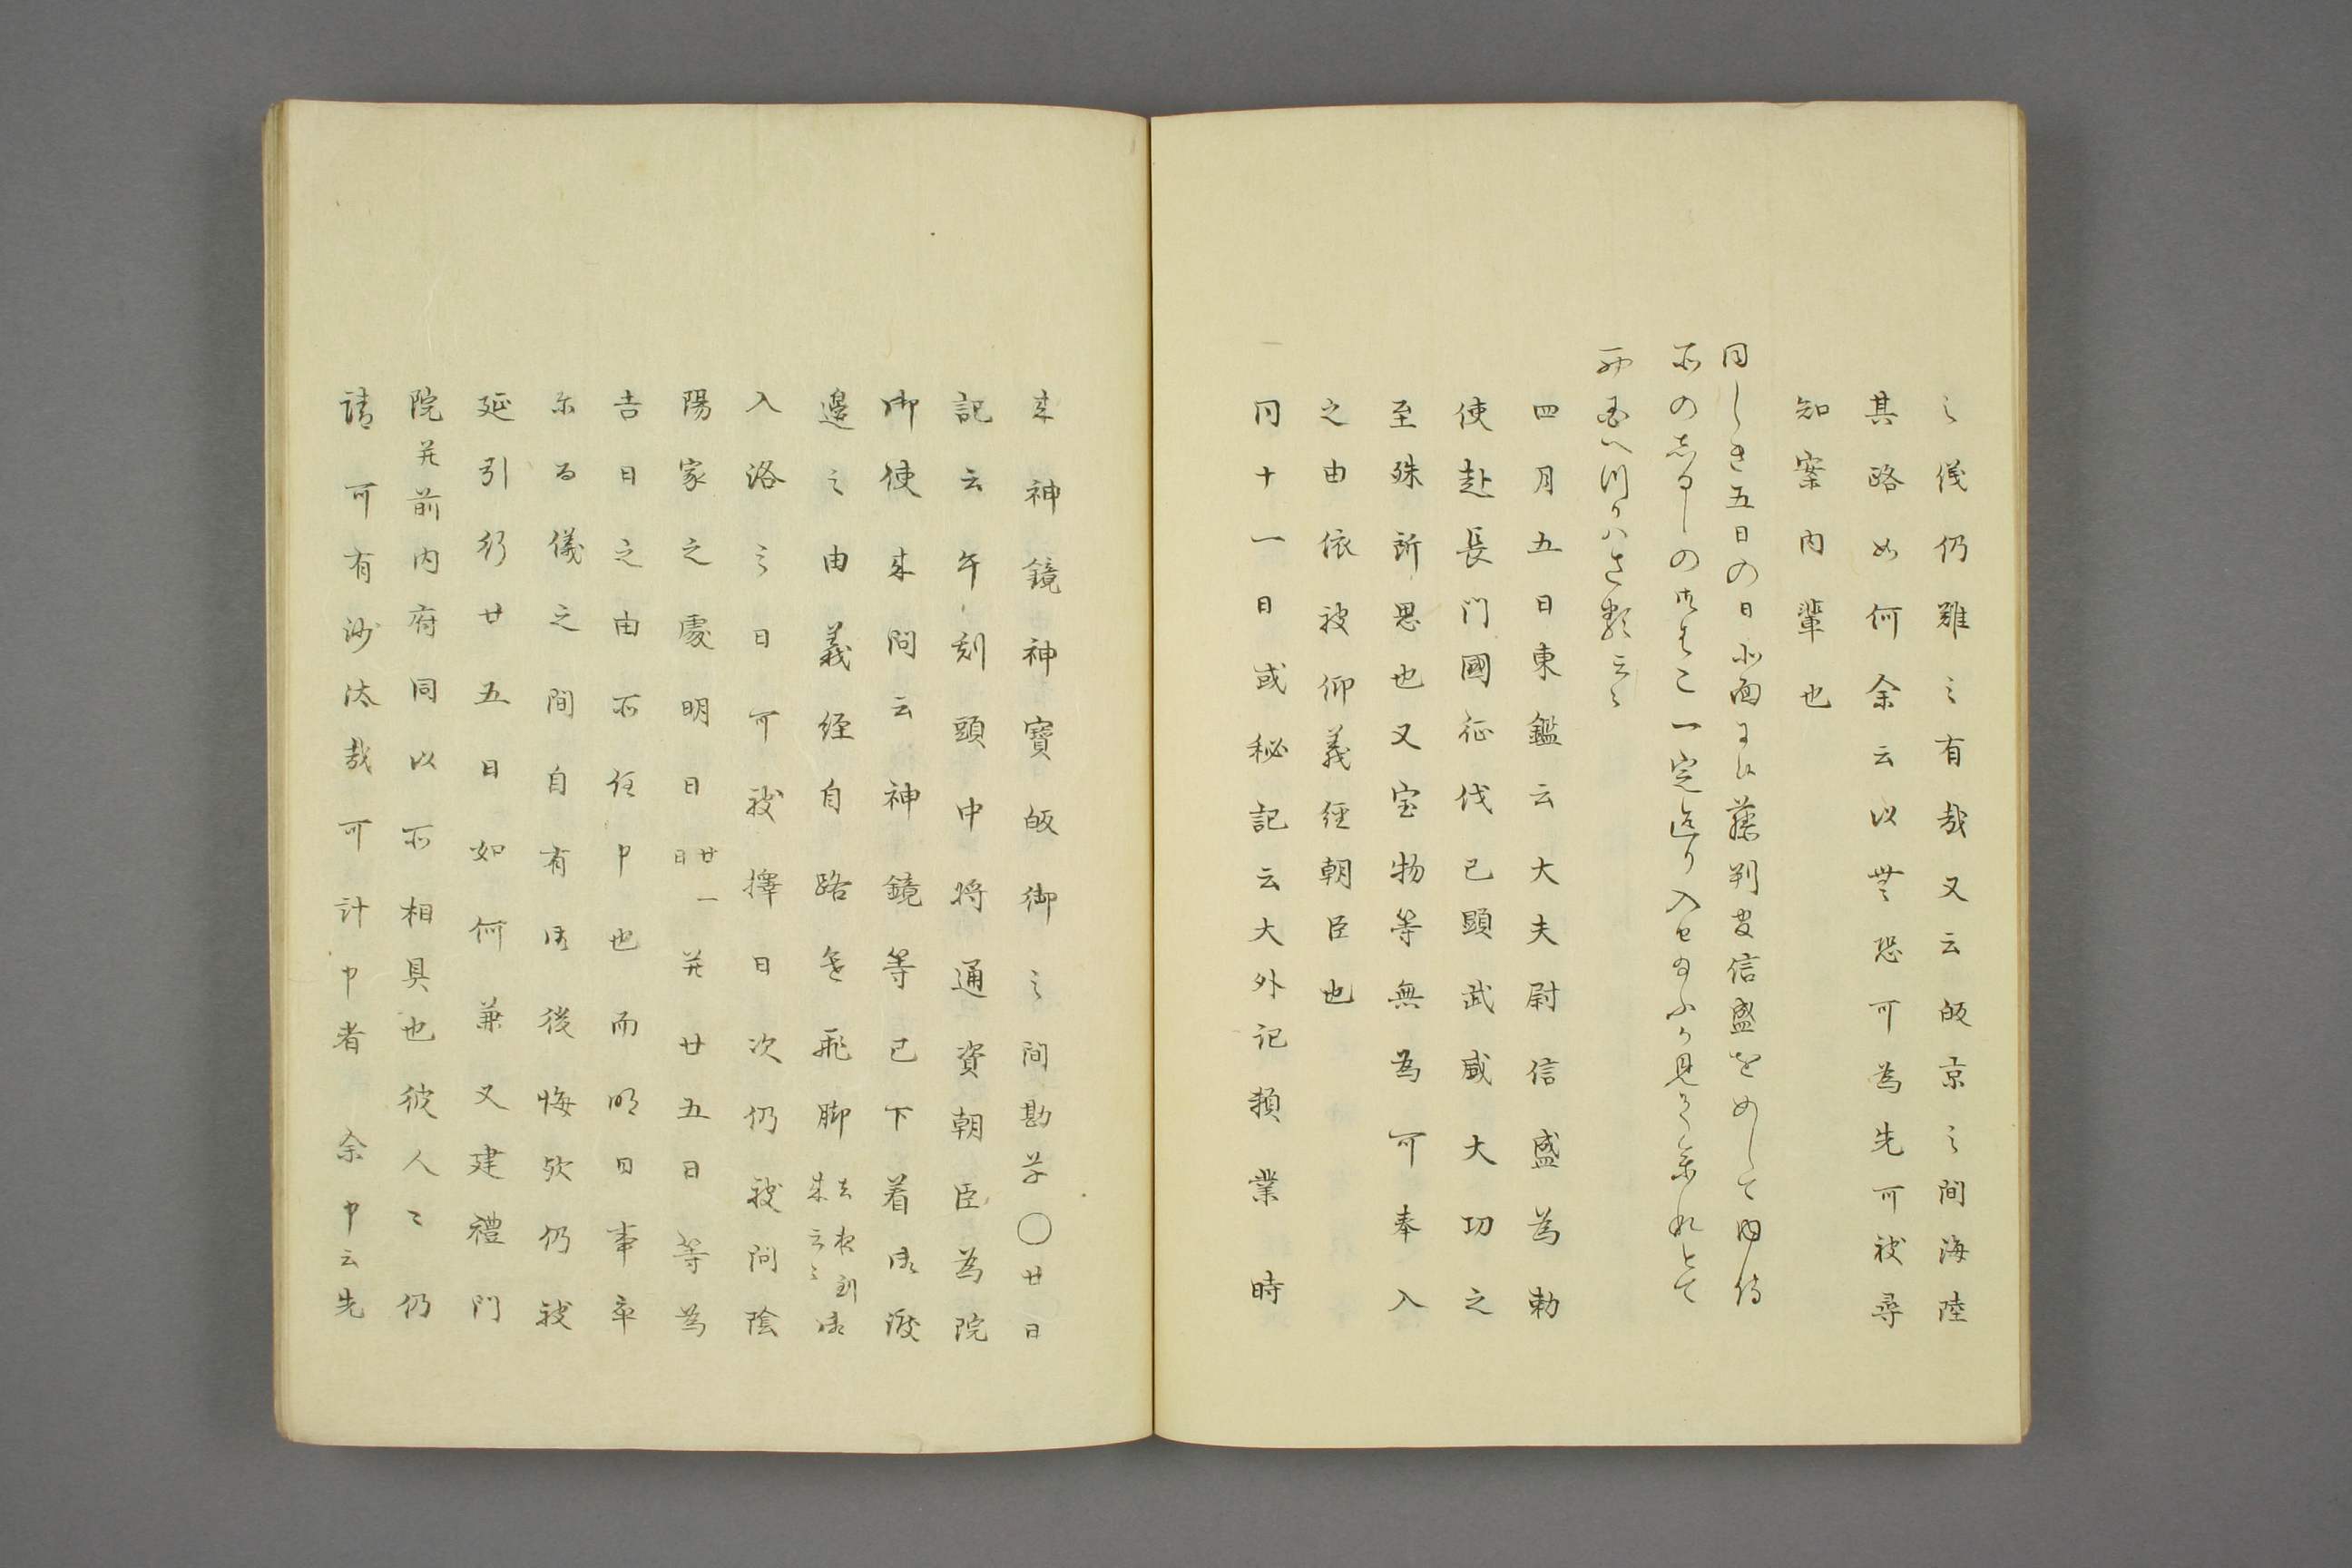 之儀仍難之有哉又云皈京之間海陸
其路如何余云以無恐可為先可被尋
知案内輩也
同しき五日の日北面には藤判官信盛をめして内侍
所のしるしの御はこ一定返り入せ給ふか見て参れとて
西国へつかはさる云々
四月五日東鑑云大夫尉信盛為勅
使赴長門國征伐已顕武威大功之
至殊所思也又宝物等無為可奉入
之由依被仰義経朝臣也
同十一日或秘記云大外記頼業時
来神鏡神寶皈御之間勘草〇廿日
記云午刻頭中将通資朝臣為院
御使来問云神鏡等已下着渡
邊之由義経自路進飛脚去夜到来云々
入洛之日可被擇日次仍被問陰
陽家之處明日廿一日并廿五日等為
吉日之由所任申也而明日事卒
尓也儀之間自有後悔欤仍被
延引行廿五日如何兼又建禮門
院并前内府同以所相具也彼人々仍
請可有沙汰哉可計申者余申云先